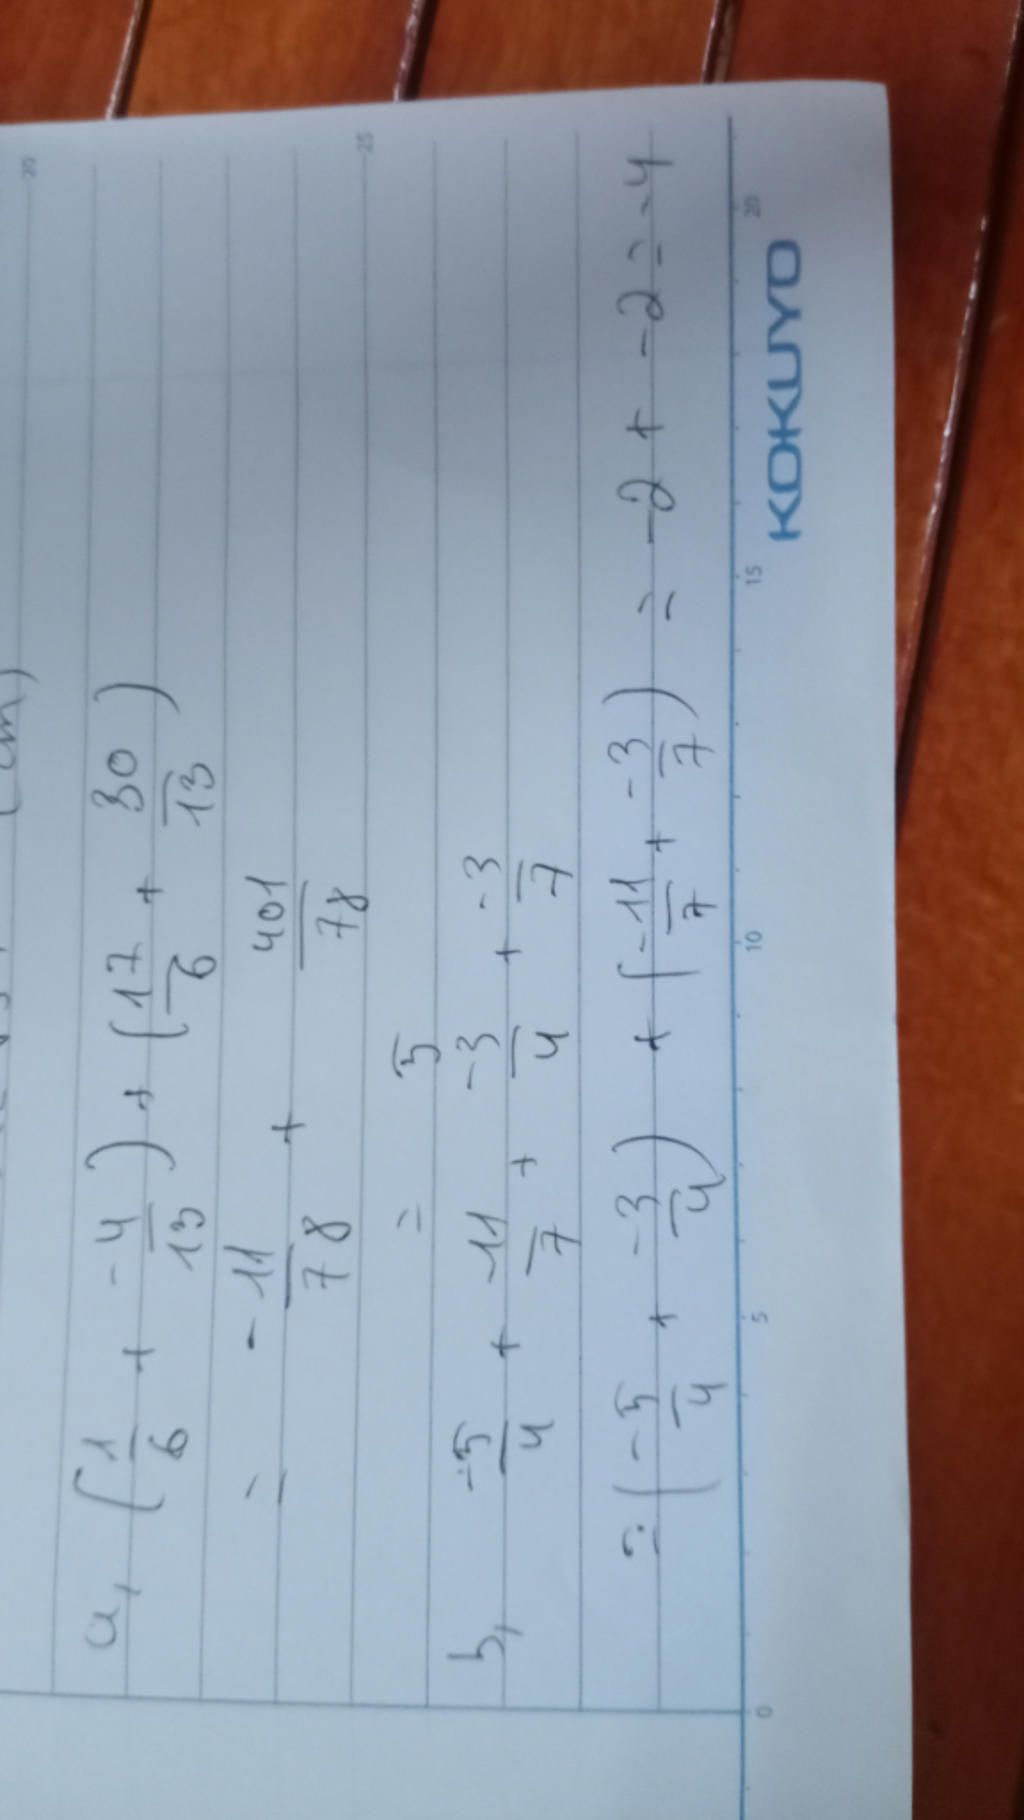 cm)
a, (1/6 + -4/13) + (17/6 + 30/13)
= -11/78 + 401/78
= 5
b, -5/4 + -11/7 + -3/4 + -3/7
= (-5/4 + -3/4) + (-11/7 + -3/7) = -2 + -2 = -4
0 5 10 15 20
KOKUYO
20
25